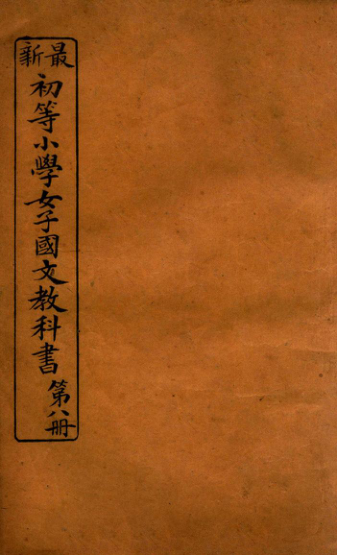 最新
初等小學女子國文教科書
第八冊